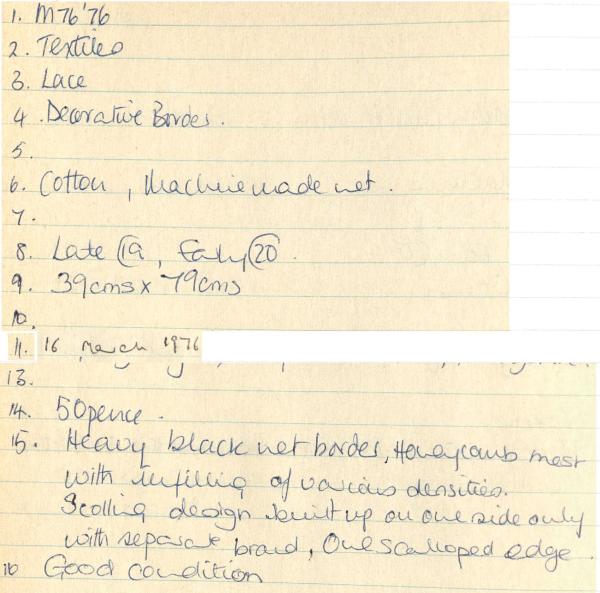 1. M76'76
2. Textiles
3. Lace
4. Decorative Border.
5.
6. Cotton, Machine made net.
7.
8. Late 19, Early 20.
9. 39cms x 79cms
10.
11. 16 March 1976
13.
14. 50pence.
15. Heavy black net border, Honeycomb mesh
with infilling of various densities.
Scolling design built up on one side only
with separate braid, One scalloped edge.
16 Good condition